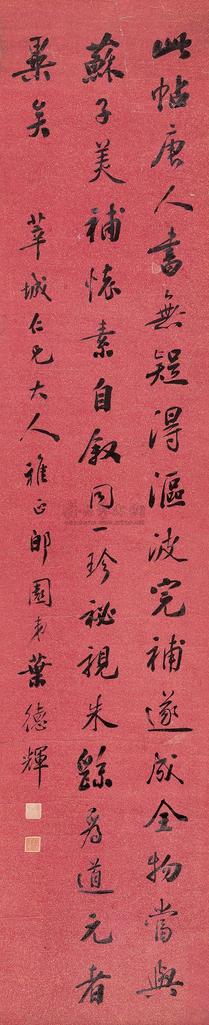 此帖唐人書無疑得漚波完補遂成全物當與
蘇子美補懷素自叙同一珍祕視朱繇為道元者
奚矣
莘城仁兄大人雅正郎園弟葉德輝